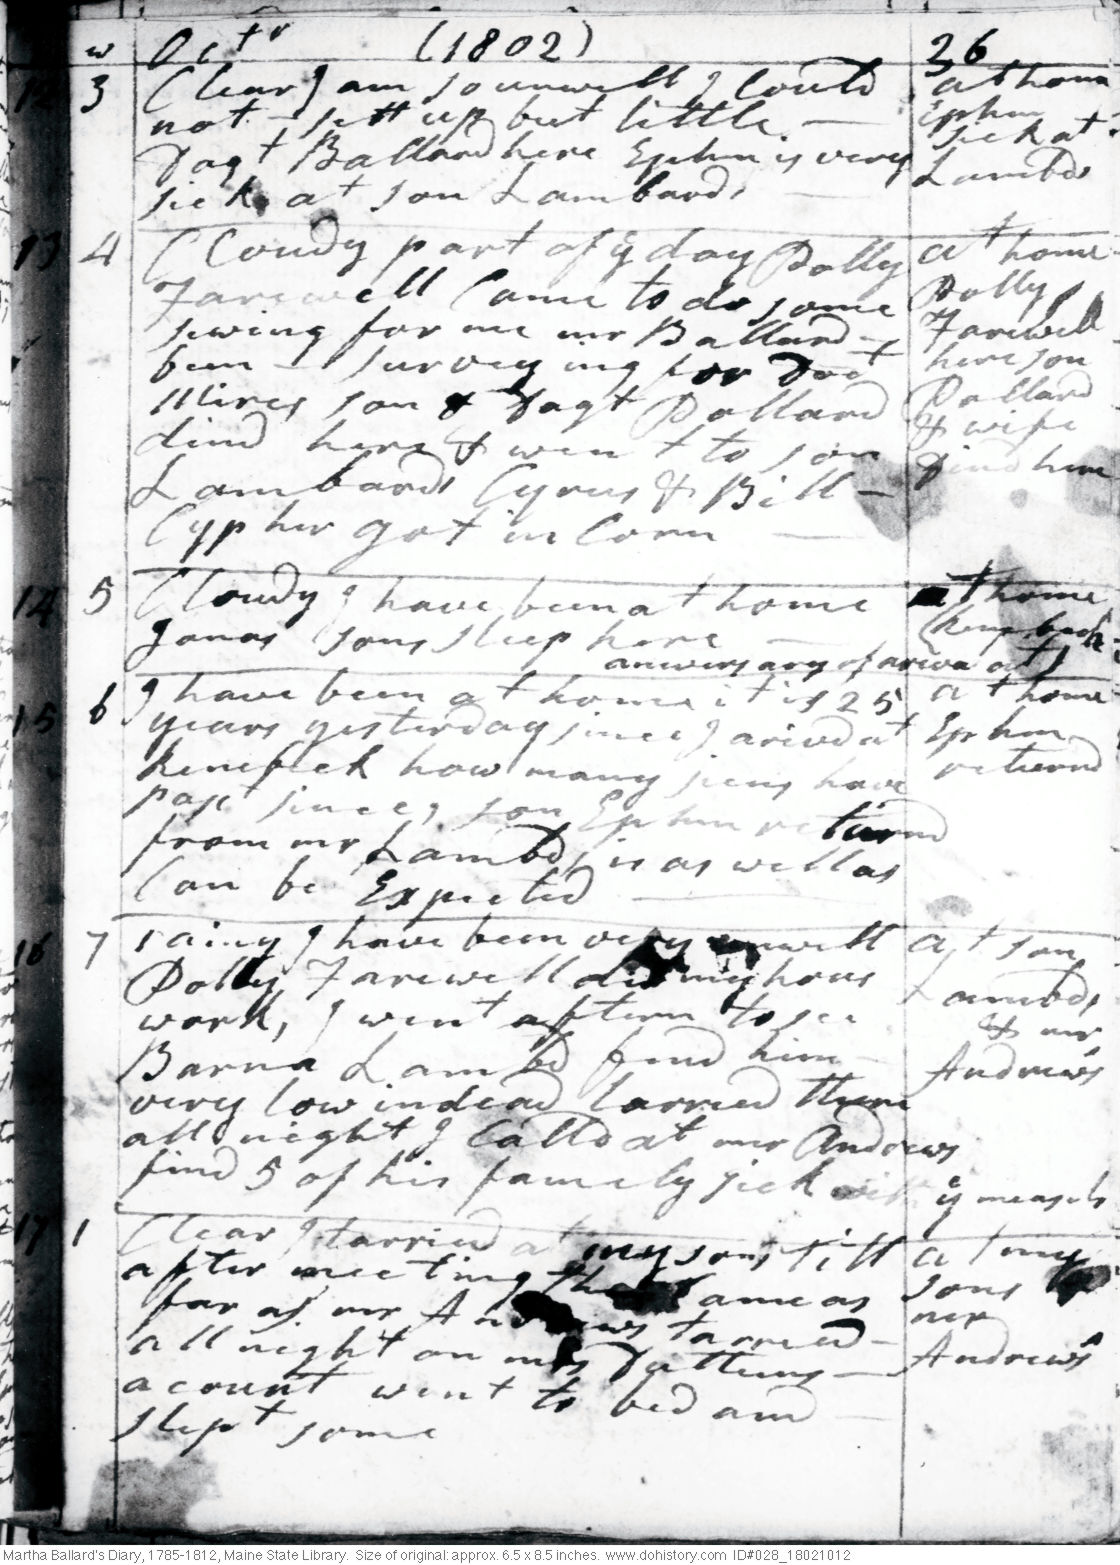 w Octr (1802) 26
12 3 Clear I am so unwell I Could
not sett up but little.
Dagt Ballard here Ephm is very
sick at son Lambards
at home
Ephm
sick at
Lambds
13 4 Cloudy part of ye day Polly
Farewell Came to do some
sewing for me mr Ballard
been surveying for Doct
son & Dagt Pollard
dind here & went to son
Lambards Cyrus & Bill
Cypher got in Corn
at home
Polly
Farewell
here son
Pollard
& wife
Dind here
14 5 Cloudy I have been at home
Jonas sons sleep here
at home
aniversary of ariva at
15 6 I have been at home it is 25
years yesterday since I arived at
Kenebeck how many siens have
past since, son Ephm returnd
from mr Lambds, is as well as
Can be Expected
at home
Ephm
returnd
16 7 rainy I have been very unwell
Polly Farewell did my hous
work, I went aftern to see
Barna Lambd find him
very low indead tarried there
all night I Calld at mr Andrews
find 5 of his famely sick with ye measels
at son
Lambds,
& mr
Andrews
17 1 Clear I tarried at my sons till
after meeting then Came as
far as mr Andrews tarried
all night on mrs Pattens
acount went to bed and
slept some
at my
sons
mr
Andrews
Martha Ballard's Diary, 1785-1812, Maine State Library. Size of original: approx. 6.5 x 8.5 inches. www.dohistory.com ID#028_18021012